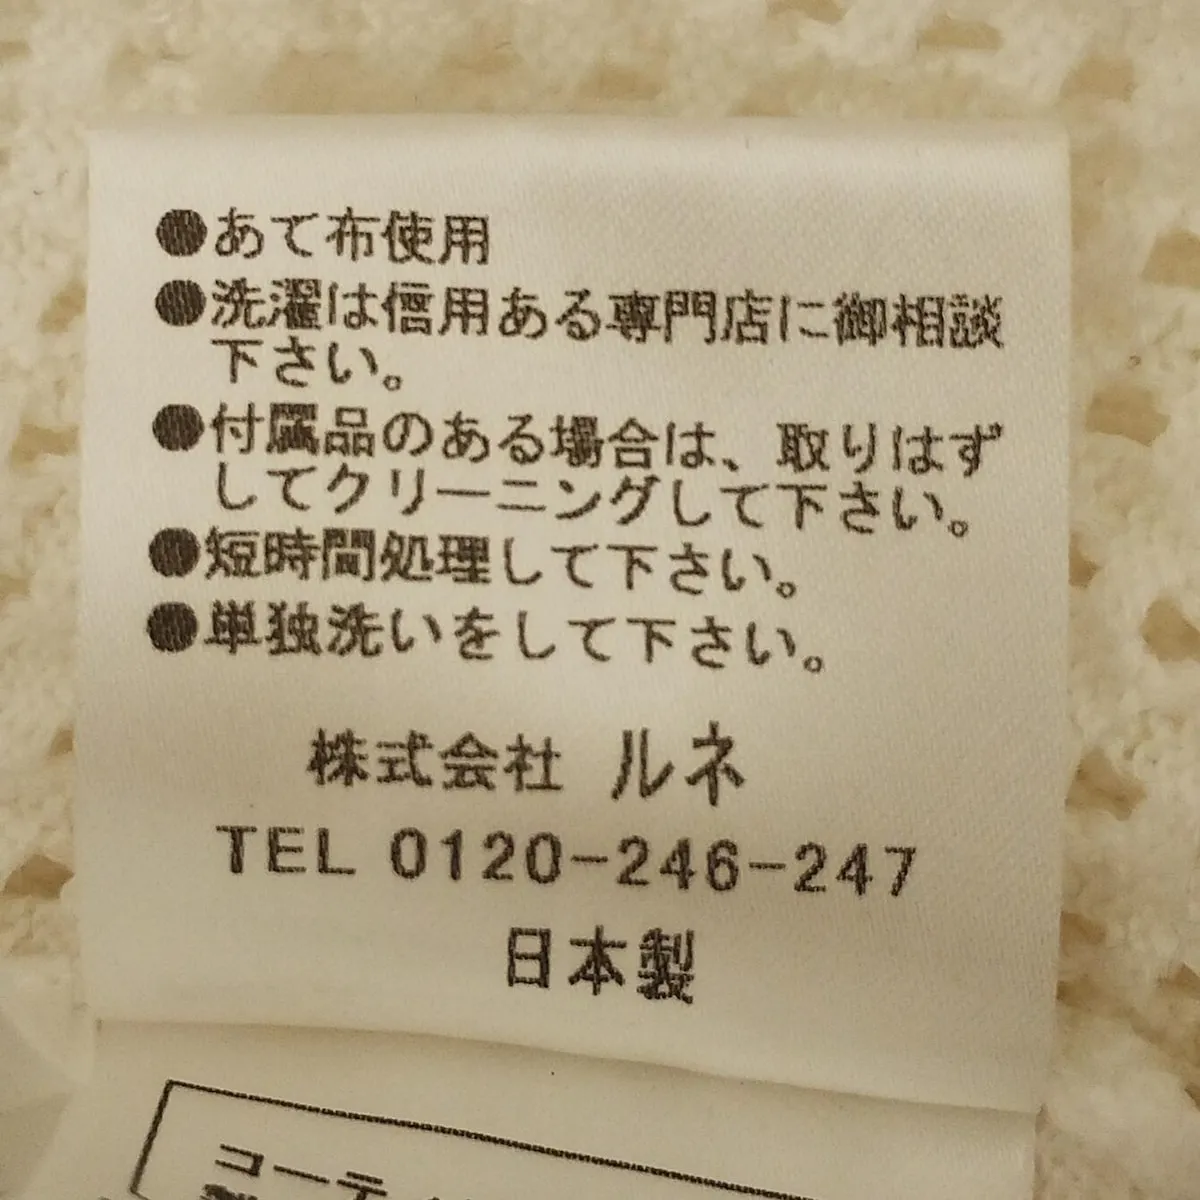 ●あて布使用
●洗濯は信用ある専門店に御相談
下さい。
●付属品のある場合は、取りはず
してクリーニングして下さい。
●短時間処理して下さい。
●単独洗いをして下さい。
株式会社 ルネ
TEL 0120-246-247
日本製
コーティ